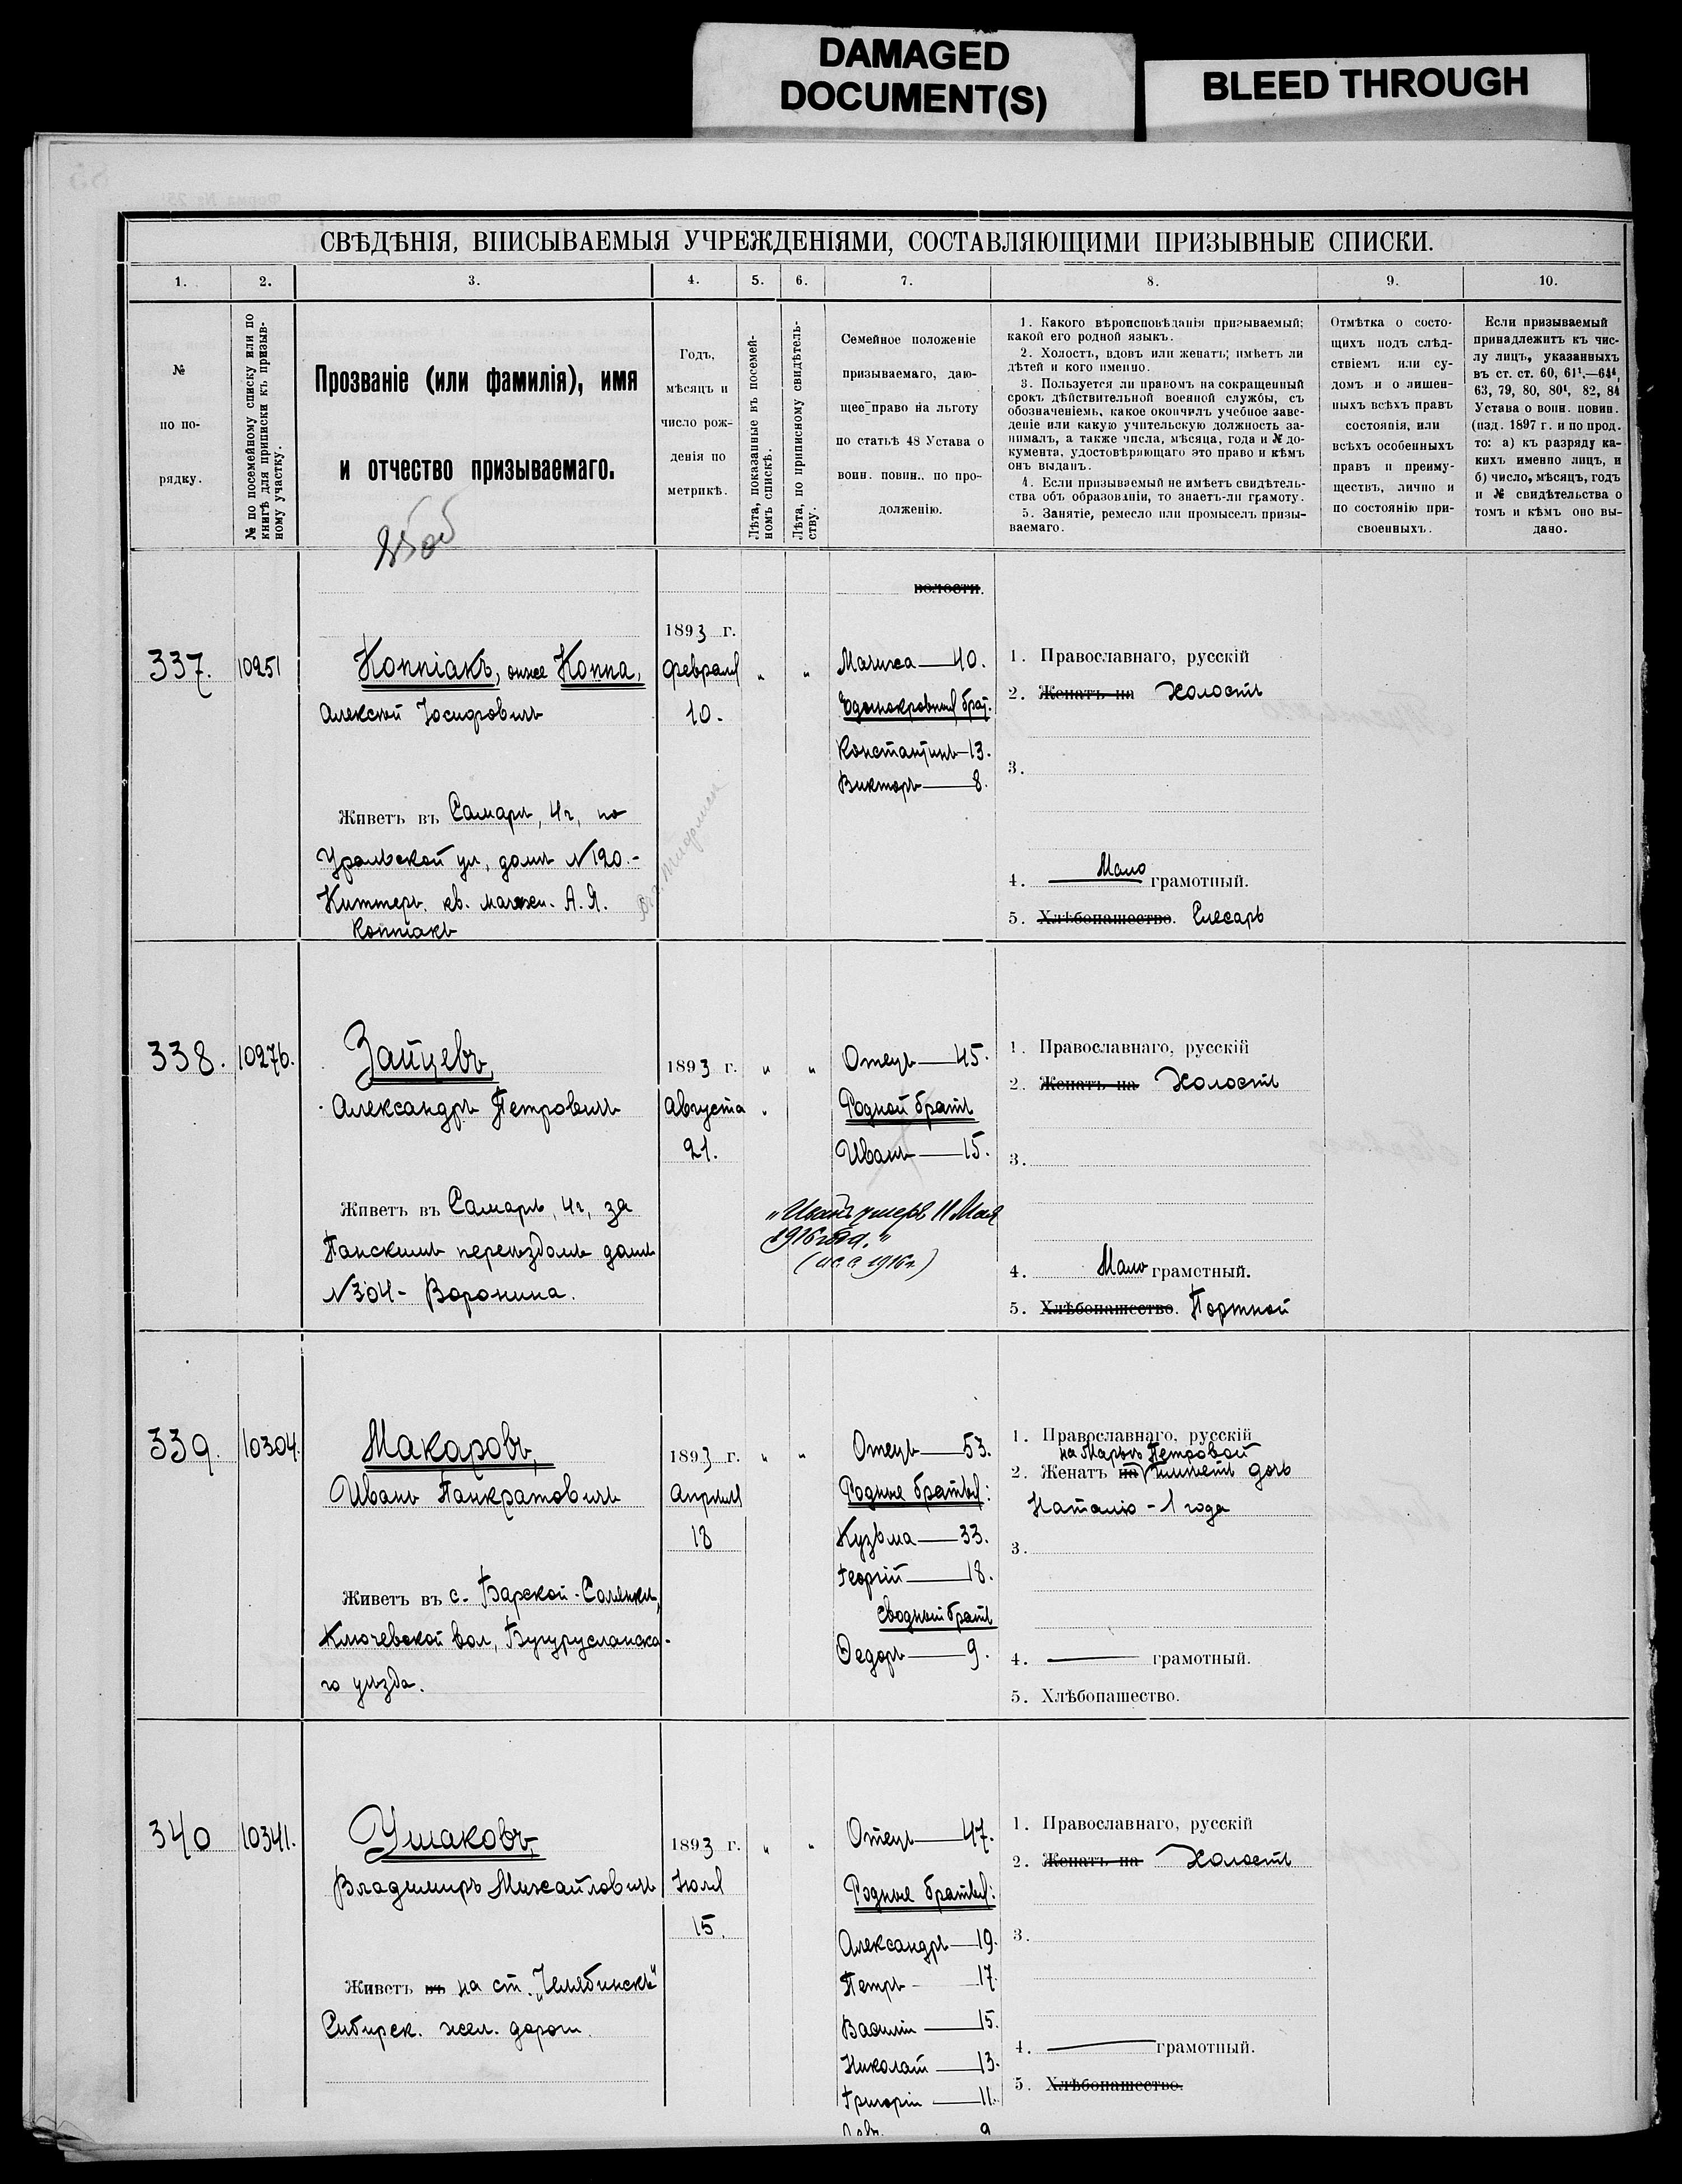 DAMAGED
DOCUMENT(S)
BLEED THROUGH
СВѢДѢНІЯ, ВПИСЫВАЕМЫЯ УЧРЕЖДЕНІЯМИ, СОСТАВЛЯЮЩИМИ ПРИЗЫВНЫЕ СПИСКИ.
1.
2.
3.
4.
5.
6.
7.
8.
9.
10.
№
по по-
рядку.
№ по посемейному списку или по
книгѣ для приписки къ призыв-
ному участку.
Прозваніе (или фамилія), имя
и отчество призываемаго.
Годъ,
мѣсяцъ и
число рож-
денія по
метрикѣ.
Лѣта, показанные въ посемей-
номъ спискѣ.
Лѣта, по приписному свидѣтель-
ству.
Семейное положеніе
призываемаго, даю-
щее право на льготу
по статьѣ 48 Устава о
воин. повин.. по про-
долженію.
1. Какого вѣроисповѣданія призываемый;
какой его родной языкъ.
2. Холостъ, вдовъ или женатъ; имѣетъ ли
дѣтей и кого именно.
3. Пользуется ли правомъ на сокращенный
срокъ дѣйствительной военной службы, съ
обозначеніемъ, какое окончилъ учебное заве-
деніе или какую учительскую должность за-
нималъ, а также числа, мѣсяца, года и № до-
кумента, удостовѣряющаго это право и кѣмъ
онъ выданъ.
4. Если призываемый не имѣетъ свидѣтель-
ства объ образованіи, то знаетъ-ли грамоту.
5. Занятіе, ремесло или промыселъ призы-
ваемаго.
Отмѣтка о состо-
щихъ подъ слѣд-
ствіемъ или су-
домъ и о лишен-
ныхъ всѣхъ правъ
состоянія, или
всѣхъ особенныхъ
правъ и преиму-
ществъ, лично и
по состоянію при-
своенныхъ.
Если призываемый
принадлежитъ къ чис-
лу лицъ, указанныхъ
въ ст. ст. 60, 61¹.—64⁴,
63, 79, 80, 80¹, 82, 84
Устава о воин. повин.
(изд. 1897 г. и по прод.
то: а) къ разряду ка-
кихъ именно лицъ, и
б) число, мѣсяцъ, годъ
и № свидѣтельства о
томъ и кѣмъ оно вы-
дано.
волости.
337.
10251
Коппіакъ, онже Коппа,
Алексѣй Іосифовичъ
Живетъ въ Самарѣ, 4ч, по
Уральской ул, домъ №120.-
Киттеръ. кв. А. Я.
Коппіакъ
1893 г.
Февраля
10.
"
"
Мачиха—40.
Единокровные брат.
Константинъ—13.
Викторъ—8.
1. Православнаго, русскій
2. Женатъ на Холостъ
3.
4. Мало грамотный.
5. Хлѣбопашество. Слесарь
338.
10276.
Зайцевъ,
Александръ Петровичъ
Живетъ въ Самарѣ, 4ч, за
Панскимъ переѣздомъ домъ
№304- Воронина.
1893 г.
Августа
21.
"
"
Отецъ—45.
Родной братъ
Иванъ—15.
"Иванъ умеръ 11 Мая
1916 года."
1. Православнаго, русскій
2. Женатъ на Холостъ
3.
4. Мало грамотный.
5. Хлѣбопашество. Портной
339.
10304.
Макаровъ,
Иванъ Панкратовичъ
Живетъ въ с. Барской-Солянкѣ,
Ключевской вол, Бугурусланска-
го уѣзда.
1893 г.
Апрѣля
18
"
"
Отецъ—53.
Родные братья:
Кузьма—33.
Георгій—18.
Сводный братъ
Федоръ—9.
1. Православнаго, русскій
на Марьѣ Петровой
2. Женатъ на имѣетъ дочь
Наталію - 1 года
3.
4. — грамотный.
5. Хлѣбопашество.
340
10341.
Ушаковъ,
Владимиръ Михайловичъ
Живетъ въ на ст. „Челябинскъ"
Сибирск. жел. дороги.
1893 г.
Іюля
15.
"
"
Отецъ—47.
Родные братья:
Александръ—19.
Петръ - 17.
Василій—15.
Николай—13.
Григорій—11.
9
1. Православнаго, русскій
2. Женатъ на Холостъ
3.
4. — грамотный.
5. Хлѣбопашество.